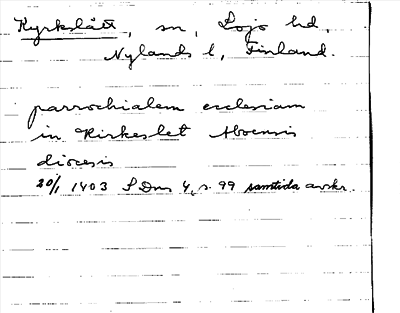 Kyrkslätt, sn, Lojo hd,
Nylands l, Finland.
parrochialem ecclesiam
in Kirkeslet Aboensis
diocesis
20/1 1403 SDns 4, s. 99 samtida avskr.